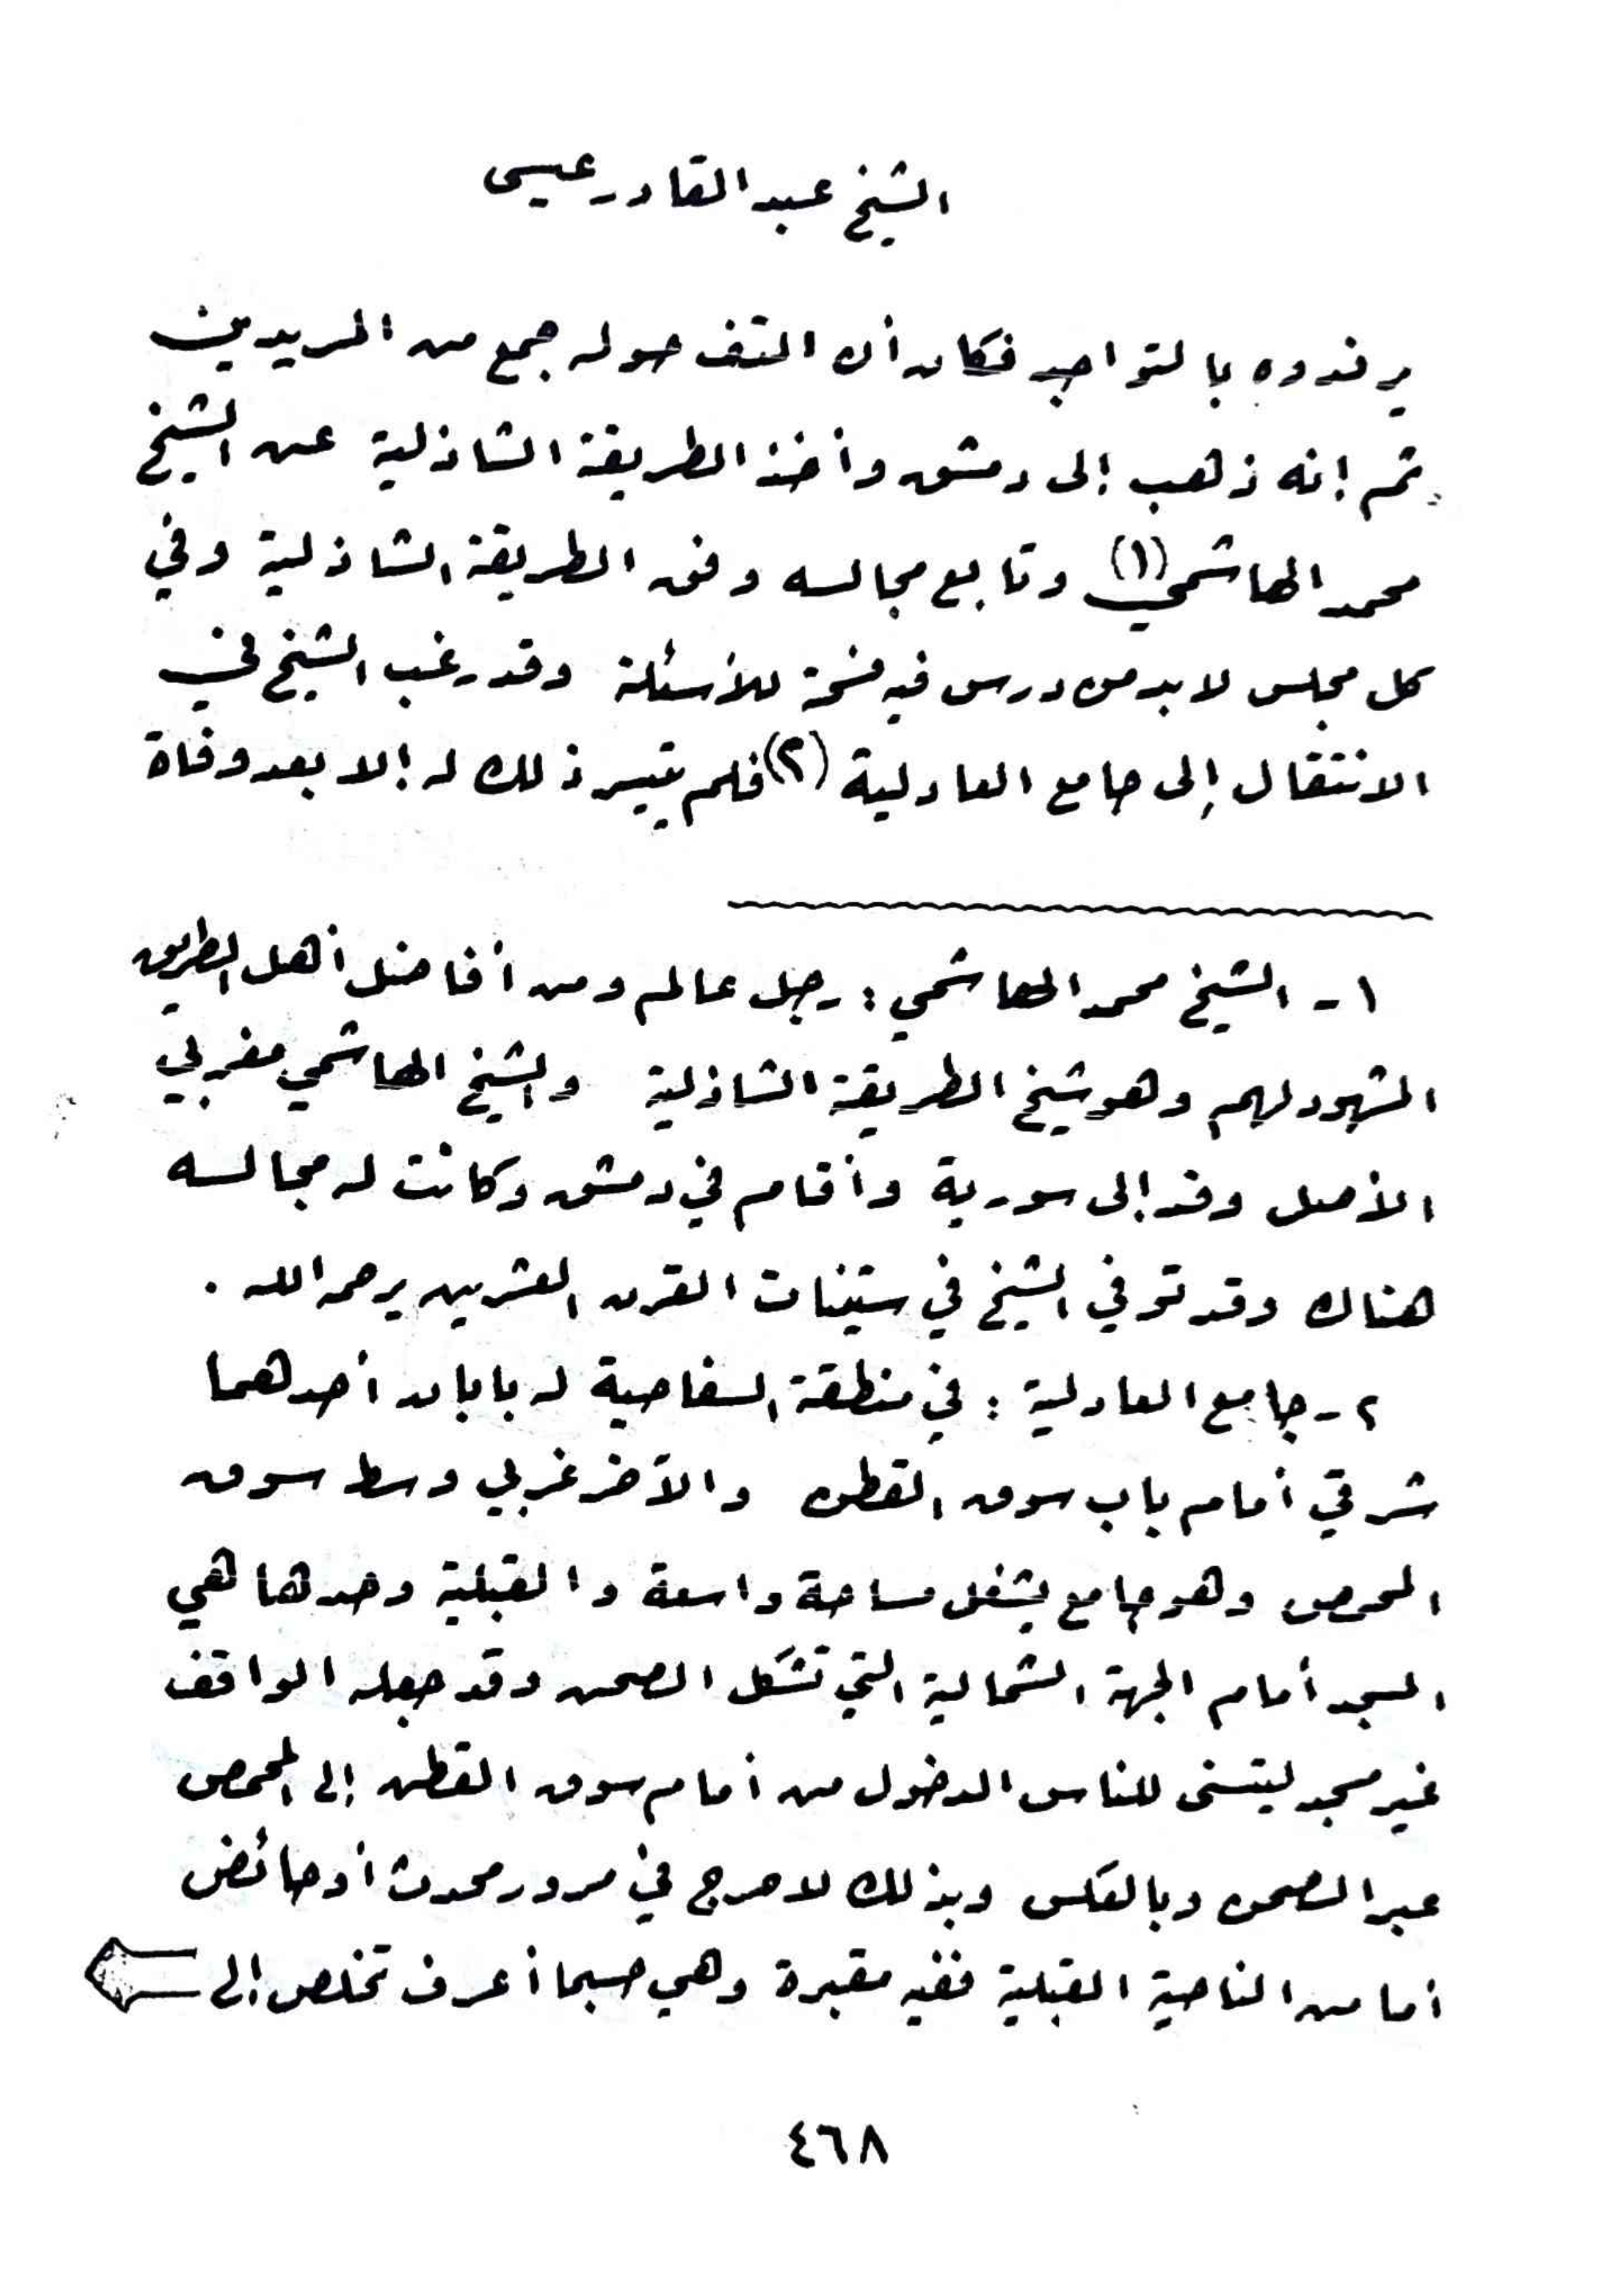 الشيخ عبد القادر عيسى
يرفدوه بالتواجد فكان أن التف حوله جمع من المريدين
ثم إنه ذهب إلى دمشق وأخذ الطريقة الشاذلية عن الشيخ
محمد الهاشمي (١) وتابع مجالسه وفق الطريقة الشاذلية وفي
كل مجلس لابد من درس فيه فسحة للأسئلة وقد رغب الشيخ في
الانتقال إلى جامع العادلية (٢) فلم يتيسر ذلك له إلا بعد وفاة
١ - الشيخ محمد الهاشمي : رجل عالم ومن أفاضل أهل الطريق
المشهود لهم وهو شيخ الطريقة الشاذلية والشيخ الهاشمي مغربي
الأصل وفد إلى سورية وأقام في دمشق وكانت له مجالسه
هناك وقد توفي الشيخ في ستينات القرن العشرين يرحمه الله .
٢ - جامع العادلية : في منطقة السفاحية له بابان أحدهما
شرقي أمام باب سوق القطن والآخر غربي وسط سوق
المحمص وهو جامع يشغل مساحة واسعة والقبلية وحدها هي
المسجد أمام الجهة الشمالية التي تشكل الصحن وقد جعله الواقف
غير مسجد ليتسنى للناس الدخول من أمام سوق القطن إلى المحمص
عبر الصحن وبالعكس وبذلك لا حرج في مرور محدث أو حائض
أما من الناحية القبلية ففيه مقبرة وهي حسبما أعرف تخلص إلى
٤٦٨